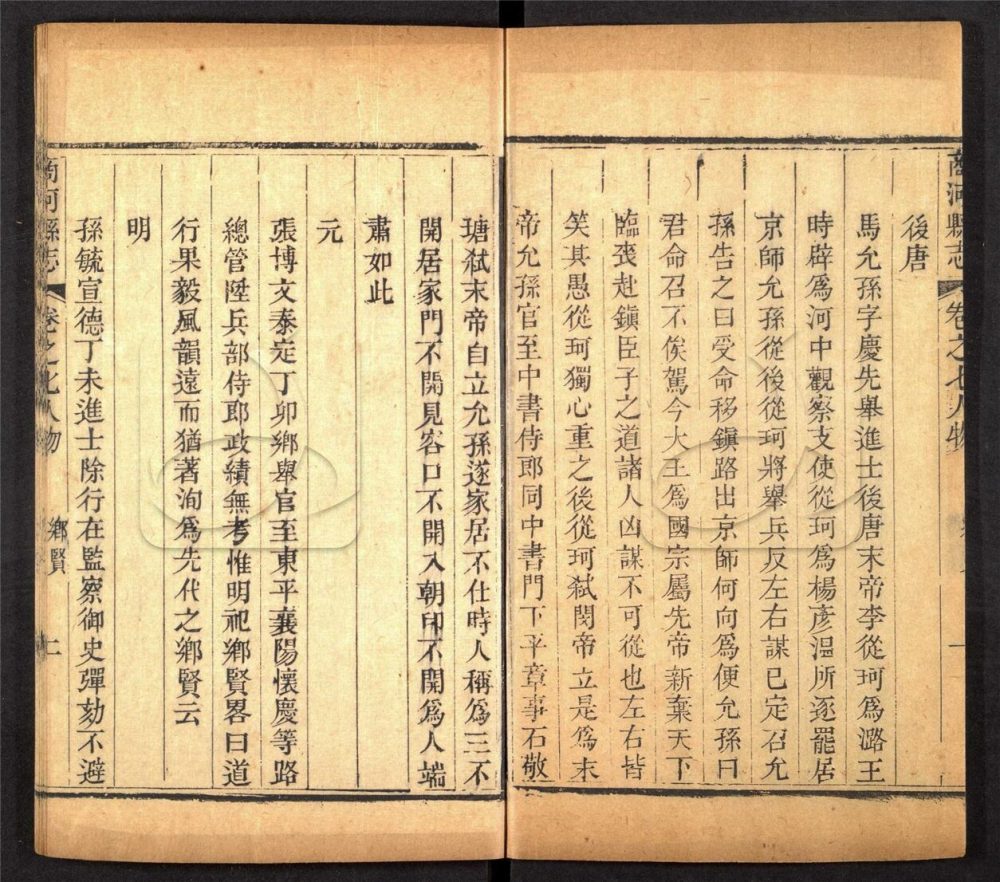 商河縣志 卷之七人物 一
後唐
馬允孫字慶先舉進士後唐末帝李從珂爲潞王
時辟爲河中觀察支使從珂爲楊彥溫所逐罷居
京師允孫從後從珂將舉兵反左右謀已定召允
孫告之曰受命移鎮路出京師何向爲便允孫曰
君命召不俟駕今大王爲國宗屬先帝新棄天下
臨喪赴鎮臣子之道諸人凶謀不可從也左右皆
笑其愚從珂獨心重之後從珂弑閔帝立是爲末
帝允孫官至中書侍郎同中書門下平章事石敬
瑭弑末帝自立允孫遂家居不仕時人稱爲三不
開居家門不開見客口不開入朝印不開爲人端
肅如此
元
張博文泰定丁卯鄉舉官至東平襄陽懷慶等路
總管陞兵部侍郎政績無考惟明祀鄉賢畧曰道
行果毅風韻遠而猶著洵爲先代之鄉賢云
明
孫毓宣德丁未進士除行在監察御史彈劾不避
商河縣志 卷之七人物 鄉賢 二